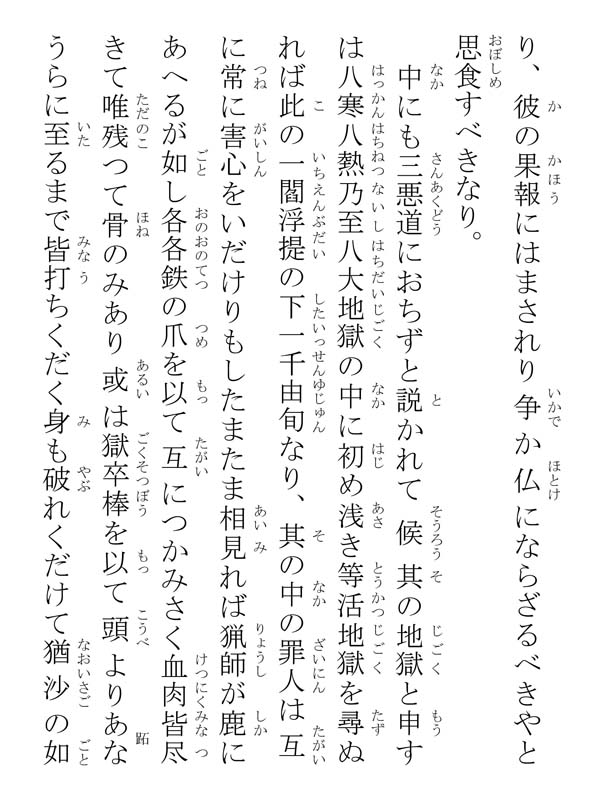 り、彼の果報にはまされり争か仏にならざるべきやと
思食すべきなり。
中にも三悪道におちずと説かれて候其の地獄と申す
は八寒八熱乃至八大地獄の中に初め浅き等活地獄を尋ぬ
れば此の一閻浮提の下一千由旬なり、其の中の罪人は互
に常に害心をいだけりもしたまたま相見れば猟師が鹿に
あへるが如し各各鉄の爪を以て互につかみさく血肉皆尽
きて唯残つて骨のみあり或は獄卒棒を以て頭よりあな
うらに至るまで皆打ちくだく身も破れくだけて猶沙の如